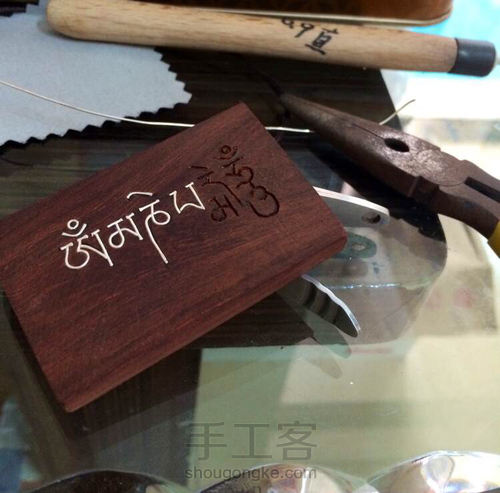 0.9直
ཨོཾ་མ་ཎི་པདྨེ་ཧཱུྃ
手工客
shougongke.com